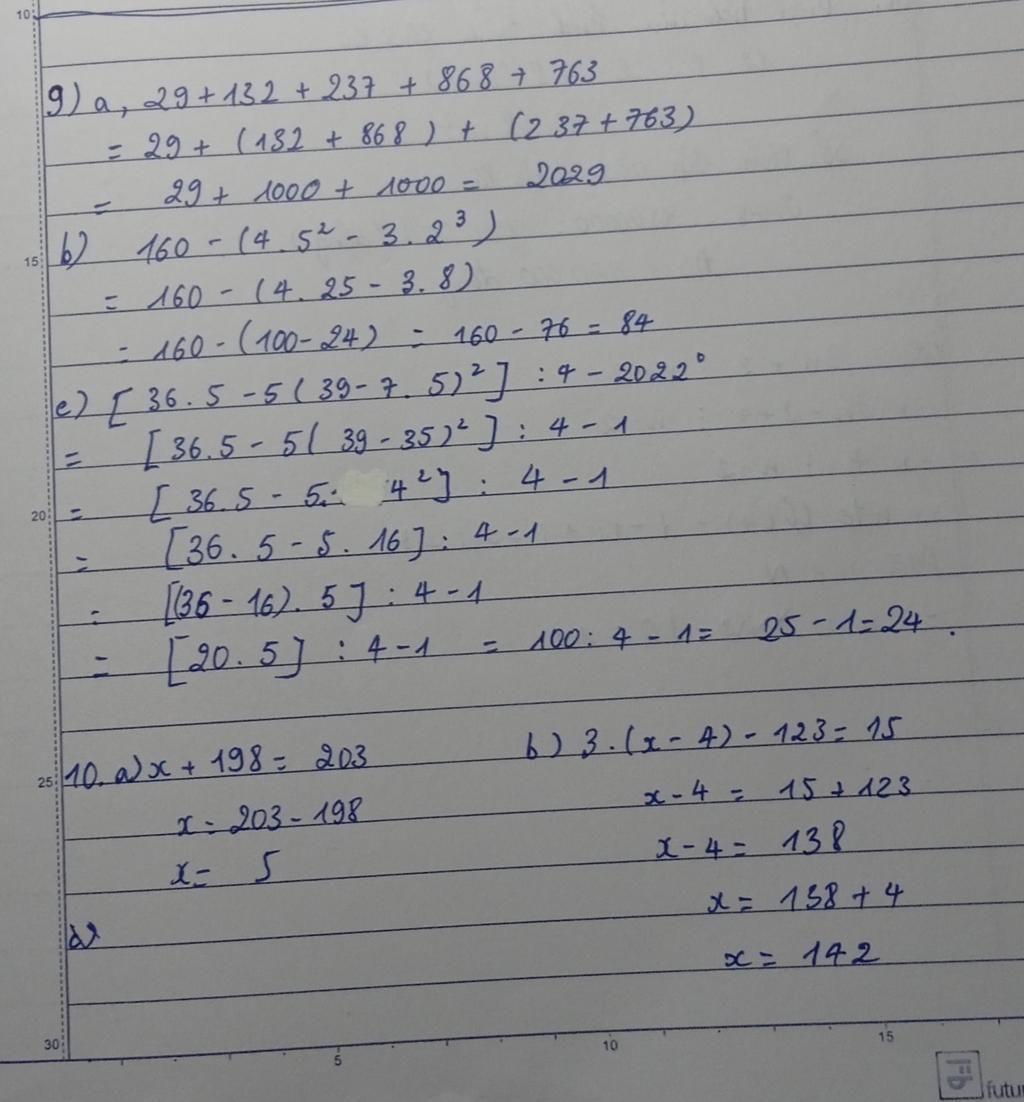 10
9) a, 29 + 132 + 237 + 868 + 763
= 29 + (132 + 868) + (237 + 763)
= 29 + 1000 + 1000 = 2029
15
b) 160 - (4. 5² - 3. 2³)
= 160 - (4. 25 - 3. 8)
= 160 - (100 - 24) = 160 - 76 = 84
c) [36. 5 - 5(39 - 7. 5)²] : 4 - 2022⁰
= [36. 5 - 5(39 - 35)²] : 4 - 1
20
= [36. 5 - 5. 4²] : 4 - 1
= [36. 5 - 5. 16] : 4 - 1
= [(36 - 16). 5] : 4 - 1
= [20. 5] : 4 - 1 = 100 : 4 - 1 = 25 - 1 = 24.
25
10. a) x + 198 = 203
x = 203 - 198
x = 5
b) 3. (x - 4) - 123 = 15
x - 4 = 15 + 123
x - 4 = 138
x = 138 + 4
x = 142
30
5 10 15
futu